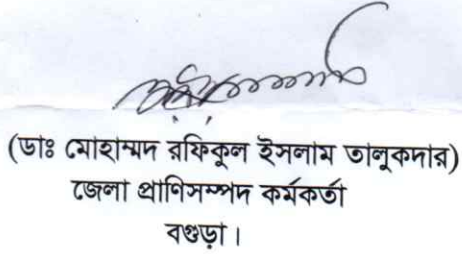 (ডাঃ মোহাম্মদ রফিকুল ইসলাম তালুকদার)
জেলা প্রাণিসম্পদ কর্মকর্তা
বগুড়া।